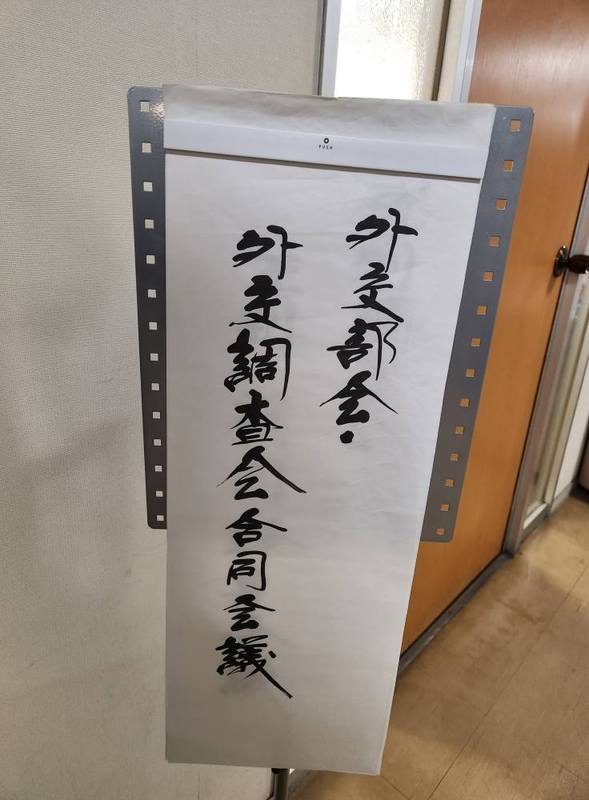 外交部会・
外交調査会合同会議
PUSH